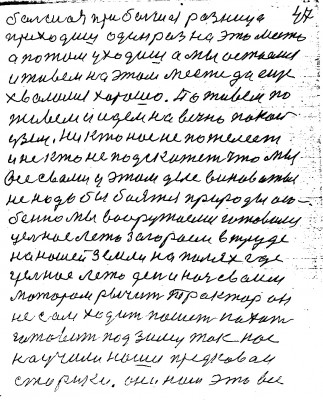 47
большая при большая разница
приходиш один раз на это место
а потом уходиш а мы остаемся
и живем на этом месте да еще
хвалимся хорошо. Поживем по
живем и идем на вечно покой
узем. Никто нас не пожелеет
и некто не подскажет что мы
все свами у этом деле виноваты
не надо бы баятся природы осо-
бенно мы вооружоемся готовимся
целное лето загораем в труде
на нашей земли на полях где
целное лето ден и ноч своим
мотором рычит трактор он
не сам ходит пашет пахот
готовит под зиму так нас
научили наши предковои
старики. они нам это все